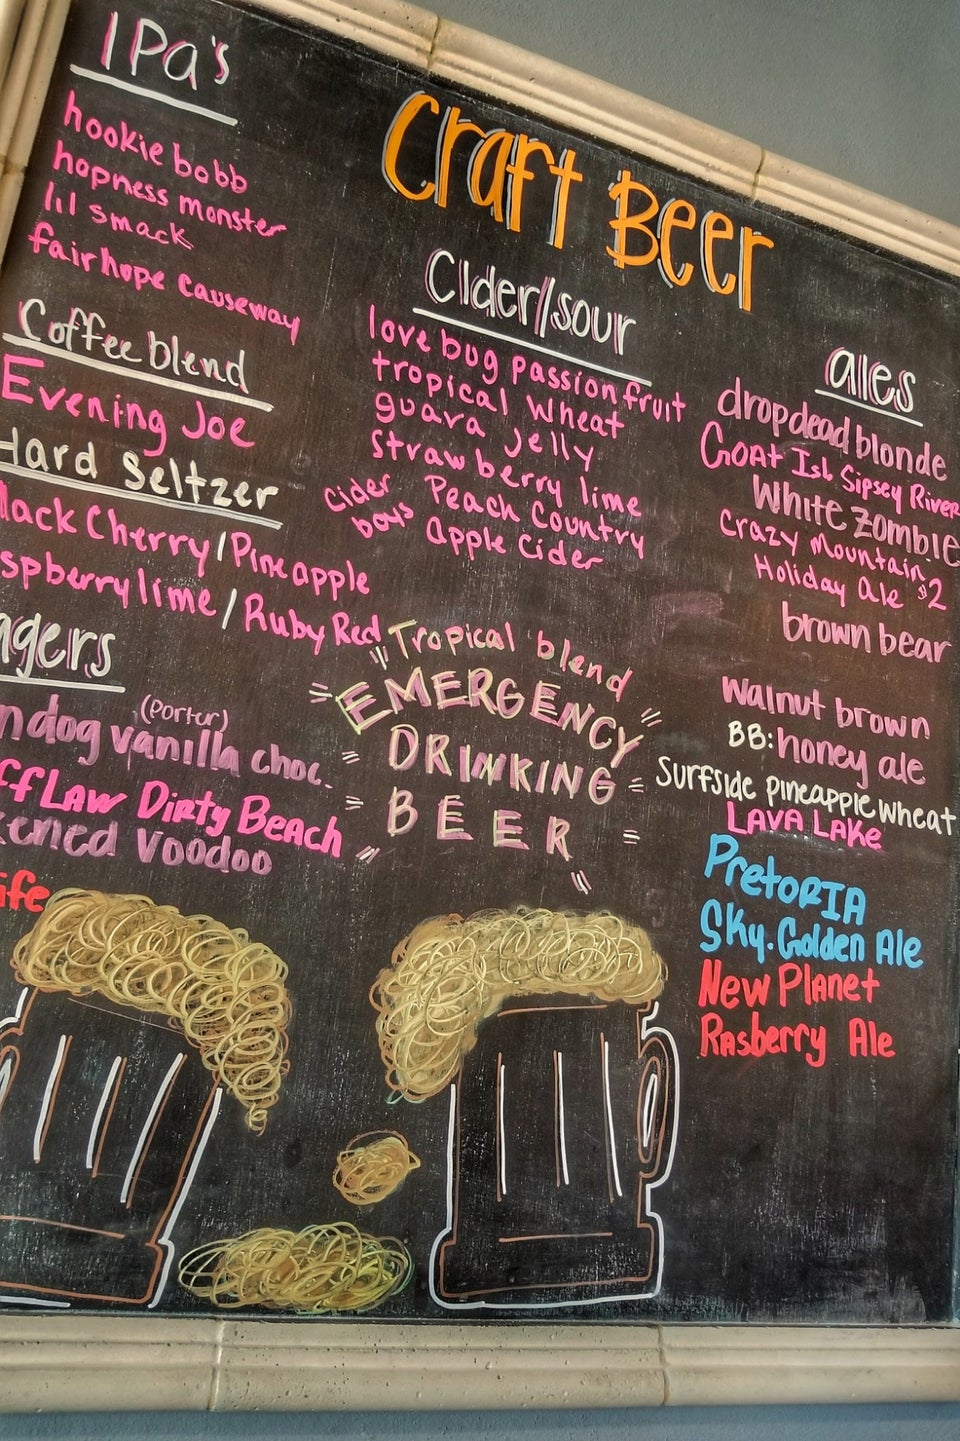 IPa's
hookie bobb
hopness monster
lil smack
fairhope causeway
Coffee blend
Evening Joe
Hard Seltzer
lack Cherry/Pineapple
spberry lime/Ruby Red
agers
ndog vanilla choc.
(Porter)
ff Law Dirty Beach
kened Voodoo
ife
Craft Beer
Cider/sour
love bug passionfruit
tropical wheat
guava jelly
strawberry lime
Cider boys
Peach Country
apple cider
"Tropical blend
EMERGENCY
DRINKING
BEER
ales
dropdead blonde
Goat Isl Sipsey River
White Zombie
Crazy mountain
Holiday Ale $2
brown bear
walnut brown
BB: honey ale
Surfside pineapple wheat
LAVA LAKE
Pretoria
Sky. Golden Ale
New Planet
Rasberry Ale